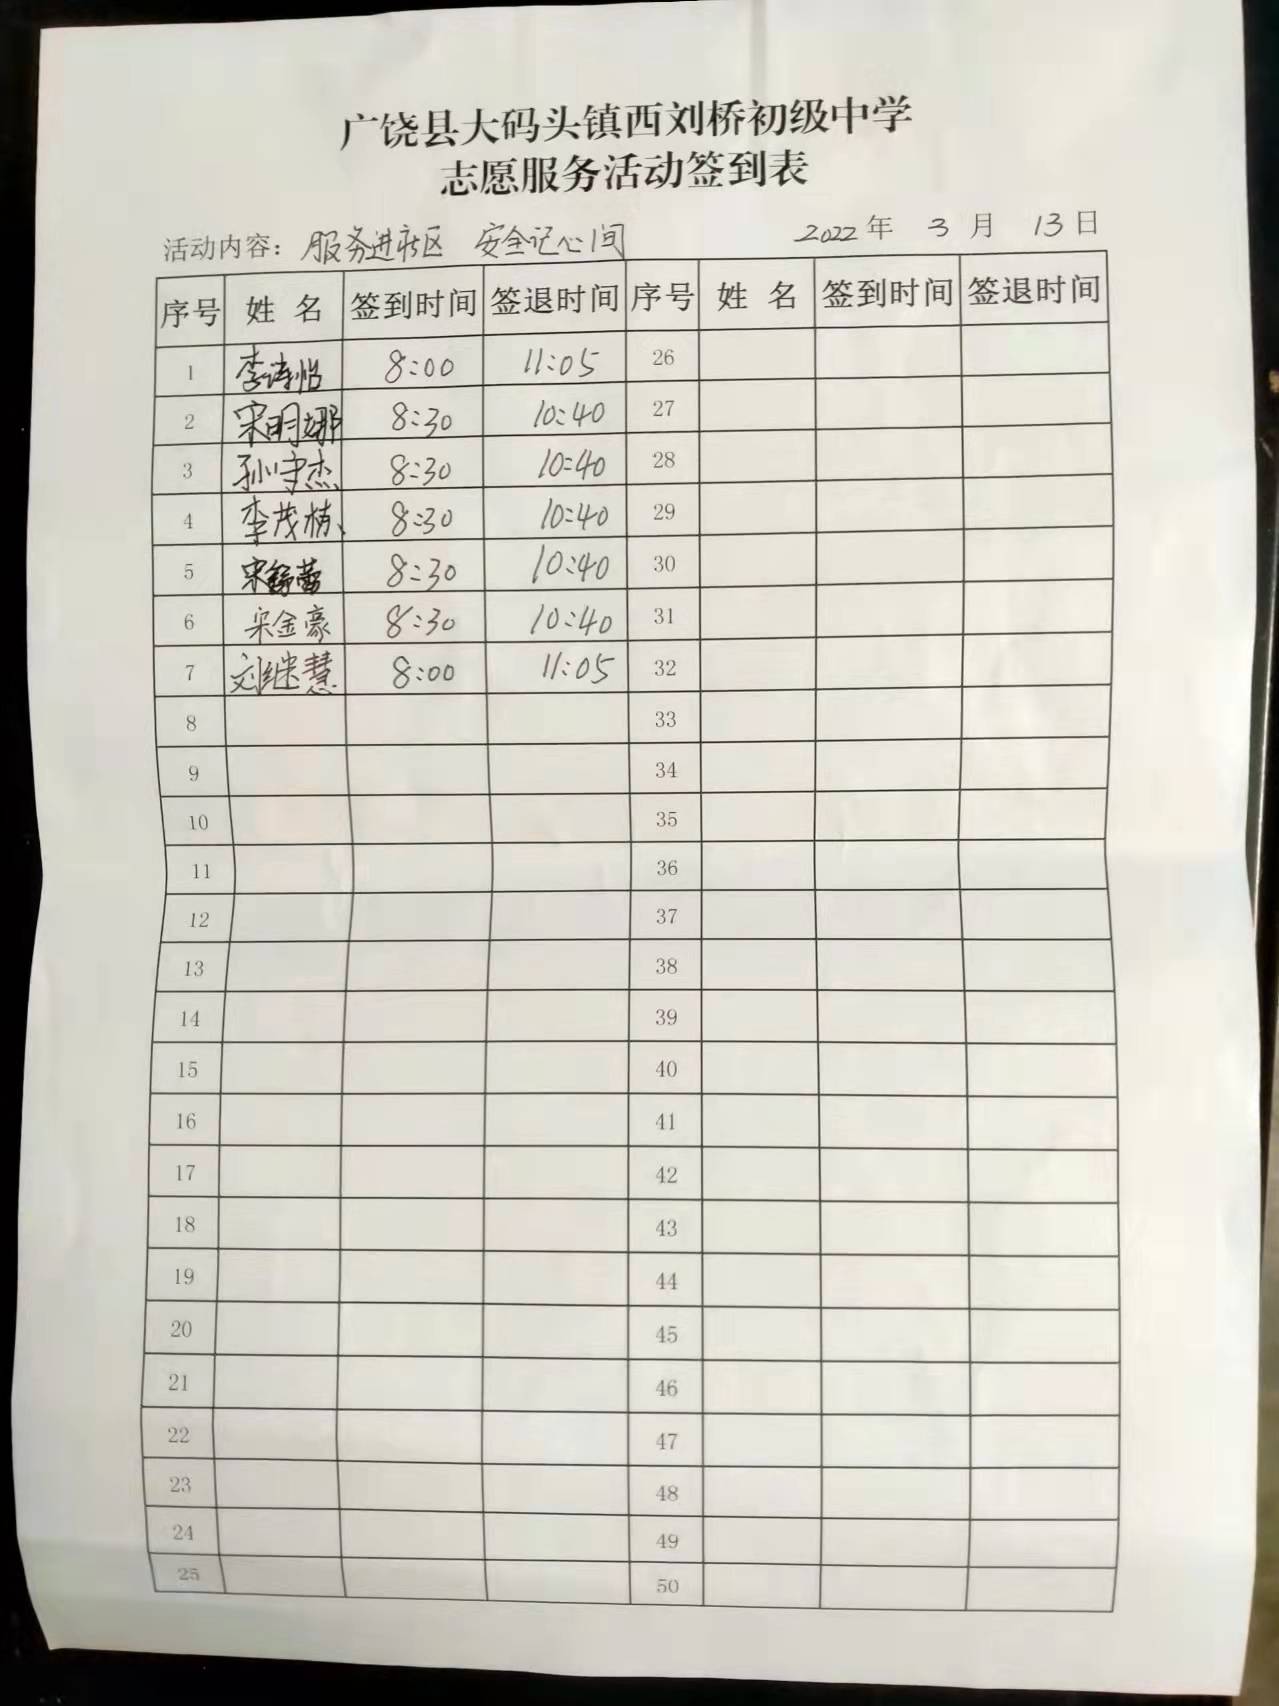 广饶县大码头镇西刘桥初级中学
志愿服务活动签到表
活动内容：服务进社区 安全记心间 2022年 3月 13日
序号 姓名 签到时间 签退时间 序号 姓名 签到时间 签退时间
1 李诗怡 8:00 11:05 26
2 宋明娜 8:30 10:40 27
3 孙守杰 8:30 10:40 28
4 李茂楠 8:30 10:40 29
5 8:30 10:40 30
6 宋金豪 8:30 10:40 31
7 刘继慧 8:00 11:05 32
8 33
9 34
10 35
11 36
12 37
13 38
14 39
15 40
16 41
17 42
18 43
19 44
20 45
21 46
22 47
23 48
24 49
25 50